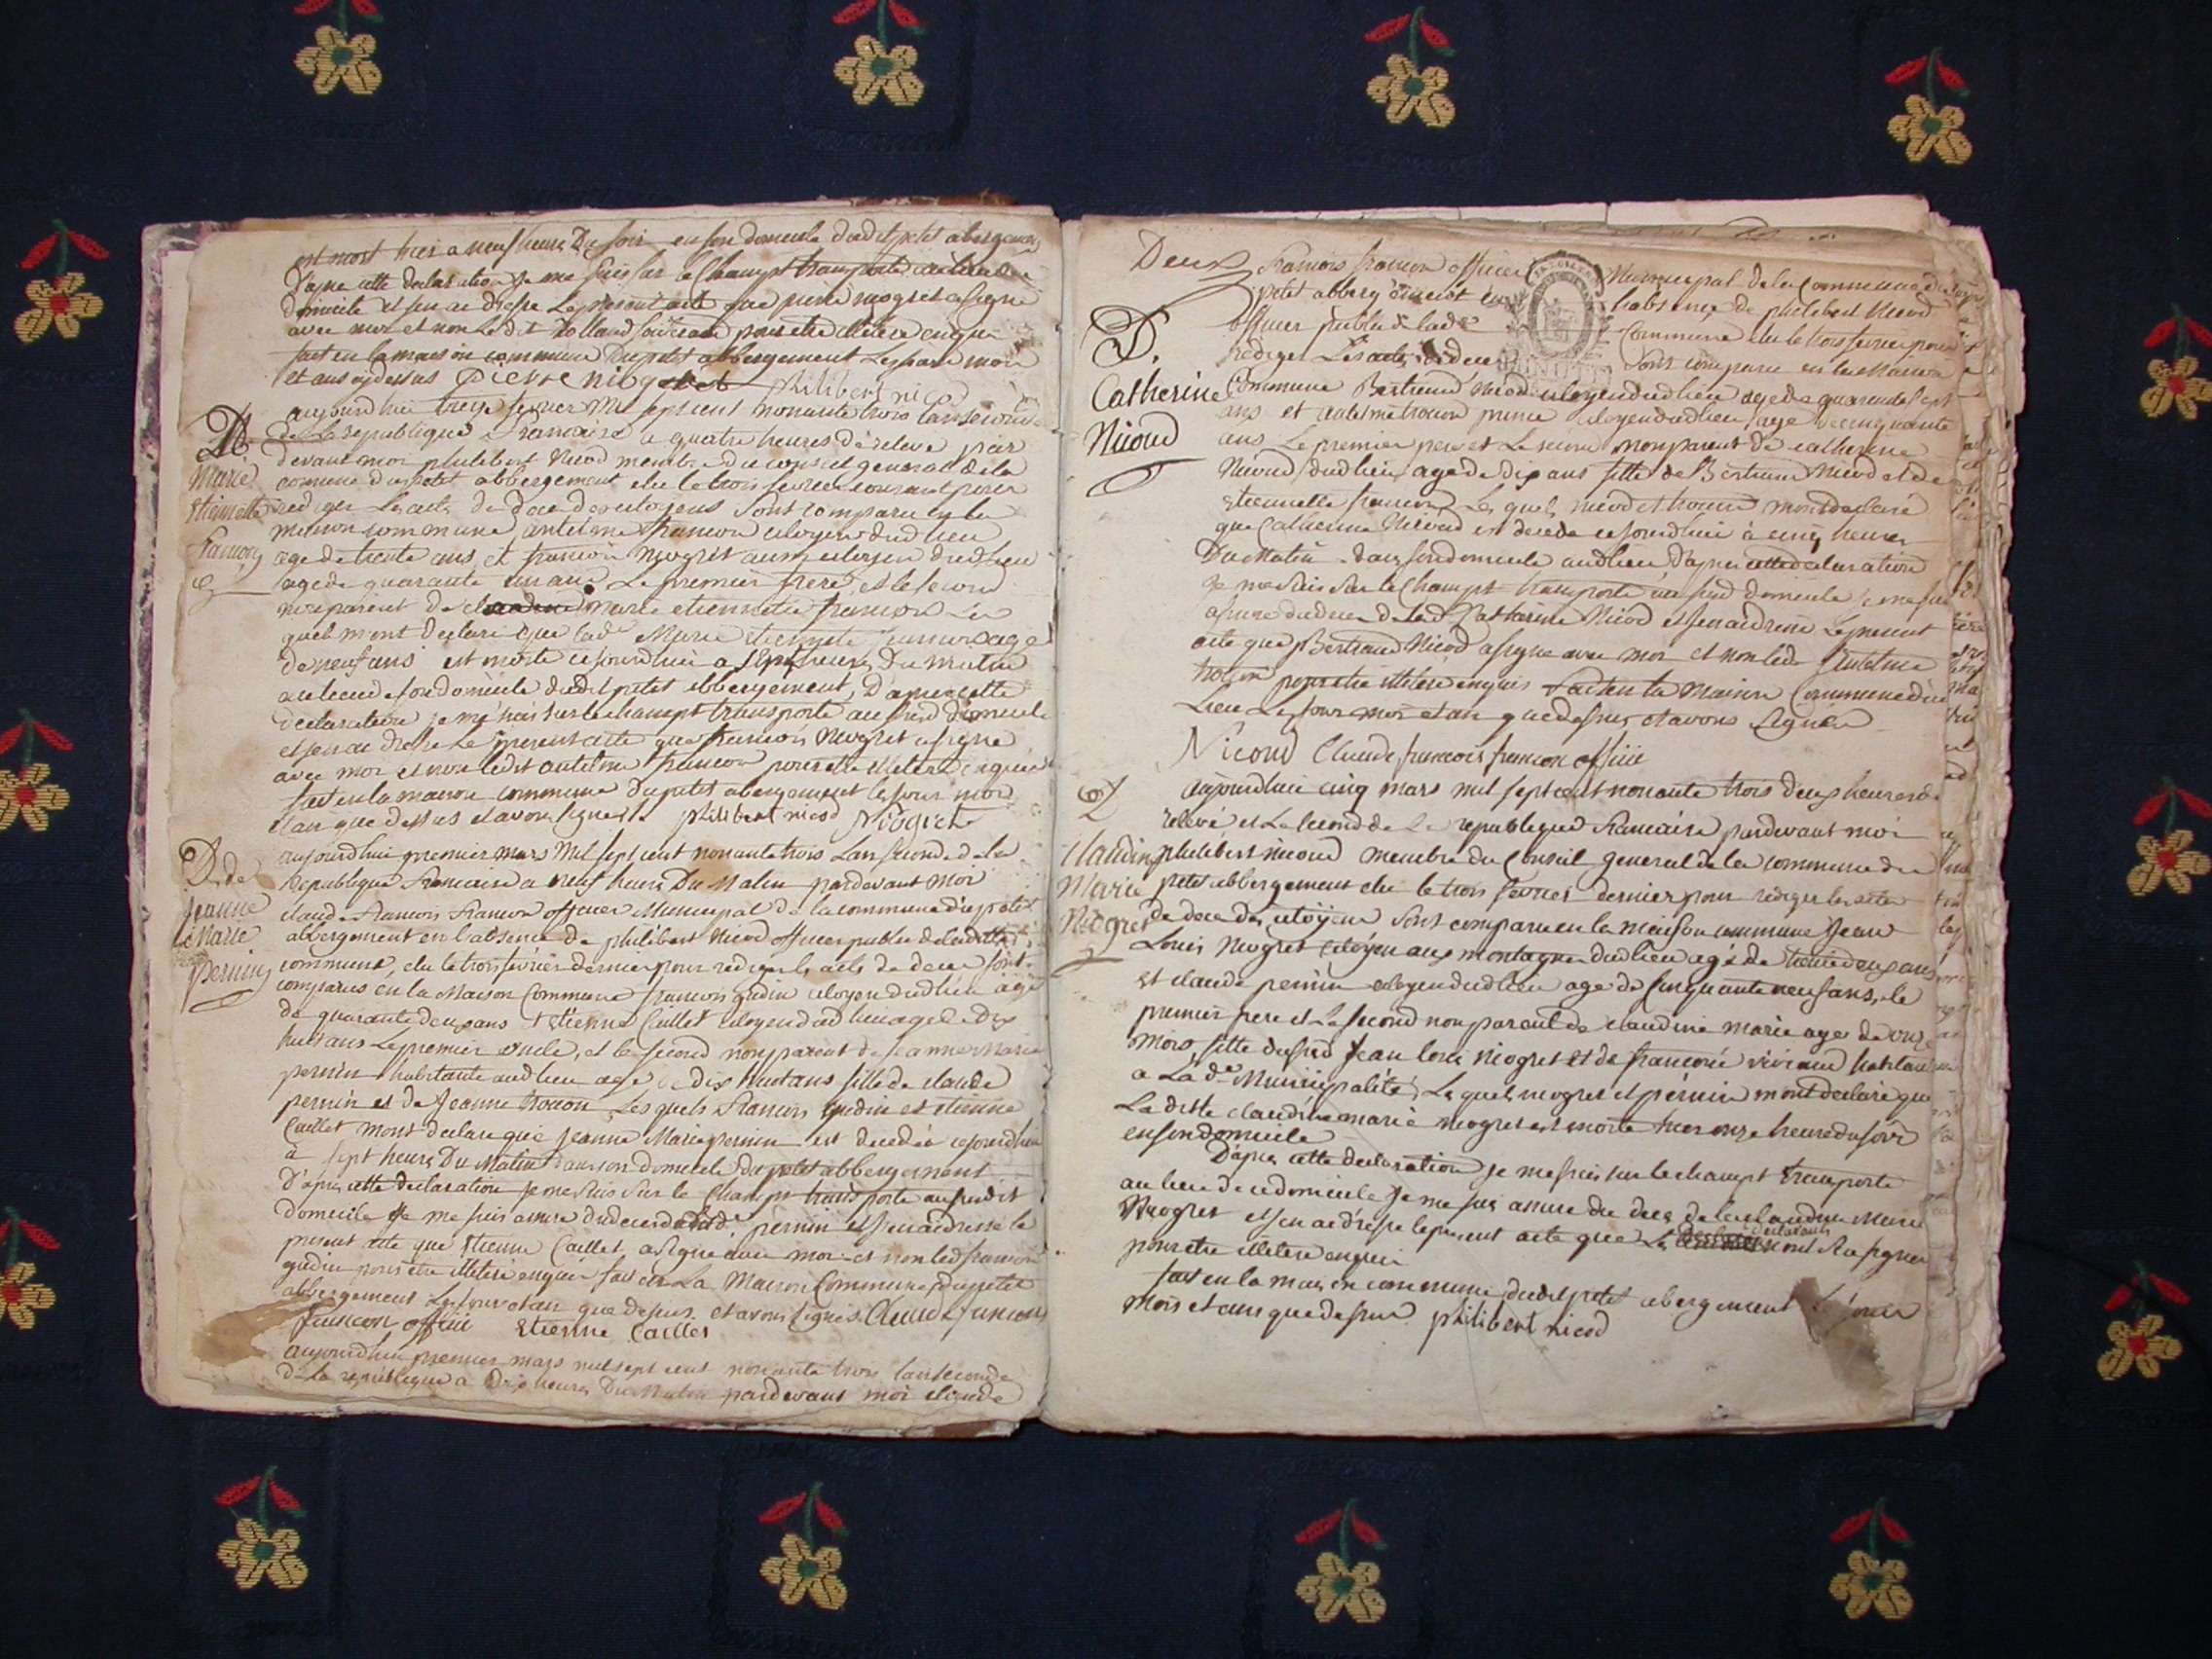 est mort hier a neuf heures Du soir en son domicile dudit petit abergement
D'apres cette declaration Je me suis sur le Champt transporté au lieu de
domicile et j'en ai dressé Le present acte que pierre niogret a signé
avec moi et non Ledit pour etre illiteré enquis
fait en la maison commune du petit abbergement Les jour mois
et an cy dessus pierre niogret philibert nicod
D.
Marie
Etiennette
françon
aujourd'hui treize fevrier Mil sept cent nonante trois L'an second
de La republique Francaise a quatre heures de relevé par
devant moi philibert Nicod membre du conseil general de la
comune du petit abbergement elu le trois fevrier courant pour
rediger Les acts de des citoyens Sont comparu en la
maison commune, antelme françon citoyen dud lieu
agé de trente ans, et francois Niogret aussi citoyen dud lieu
agé de quarante un ans Le premier frere, et le second
non parent de marie etiennette françon Les
quels m'ont declaré que lade Marie etiennette françon agé
de neuf ans est morte cejourd'hui a sept heures Du matin
au lieu de son domicile dudit petit abbergement, D'apres cette
declaration je me suis sur le champt transporté au susd domicile
et j'en ai dressé Le present acte que francois Niogret a signé
avec moi et non ledit antelme françon pour etre illiteré enquis
fait en la maison commune du petit abergement les jour mois
et an que dessus et avons signés philibert nicod Niogret
D. de
Jeanne
Marie
pernin
aujourd'hui premier mars Mil sept cent nonante trois L'an second de la
Republique francaise a neuf heures Du Matin pardevant moi
claude Francois françon officier Municipal de la commune du petit
abbergement en l'absence de philibert Nicod officier public de ladite
commune, elu le trois fevrier dernier pour rediger les acts de deces sont
comparus en la Maison Commune francois gudin citoyen dud lieu agé
de quarante deux ans et Etienne Caillet citoyen dud lieu agé de dix
huit ans Le premier oncle, et le second non parent de Jeanne Marie
pernin habitante aud lieu agé de dix huit ans fille de claude
pernin et de Jeanne trocon Les quels francois gudin et etienne
Caillet m'ont declaré que Jeanne Marie pernin est decedée cejourd'hui
à sept heures Du Matin dans son domicile du petit abbergement
D'apres cette declaration je me suis sur le Champt transporté au susdit
domicile je me suis assuré du deces de lade pernin et j'en ai dressé le
present acte que Etienne Caillet a signé avec moi et non led francois
gudin pour etre illiteré enquis fait en La Maison Commune du petit
abbergement Les jour et an que dessus et avons signés Claude francois
francon offiié Etienne Caillet
aujourd'hui premier mars mil sept cent nonante trois l'an second
de la republique a dix heures Du Matin pardevant moi claude
Deux
francois françon officier Municipal de la Commune du
petit abbergement en l'absence de philibert Nicod
officier public de lade Commune elu le trois fevrier pour
rediger Les acts de deces Sont comparu en la Maison
D.
Catherine
Nicoud
Commune Bertrand Nicod citoyen dud lieu agé de quarante sept
ans et antelme trocon citoyen dud lieu agé de cinquante
ans Le premier pere et Le second non parent de catherine
Nicoud dud lieu agé de dix ans fille de Bertrand Nicod et de
Etiennette françon, Les quels nicod et trocon m'ont declaré
que Catherine Nicoud est decedé cejourd'hui à cinq heures
Du Matin dans son domicile aud lieu D'apres cette declaration
je me suis sur le Champt transporté au susd domicile je me suis
assuré du deces de lade Catherine Nicod et j'en ai dressé Le present
acte que Bertrand Nicod a signé avec moi et non led Antelme
trocon pour etre illiteré enquis fait en la Maison Commune dud
Lieu Les jour mois et an que dessus et avons signés
Nicoud Claude francois francon offiié
D
Claudine
Marie
Niogret
aujourd'hui cinq mars mil sept cent nonante trois deux heures de
relevé et Le second de La republique francaise pardevant moi
philibert nicoud membre du Conseil general de la commune du
petit abbergement elu le trois fevrier dernier pour rediger les acts
de deces des citoÿens Sont comparu en la maison commune Jean
Louis Niogret citoyen aux montagnes dud lieu agé de trente deux ans
Et claude pernin citoyen dud lieu agé de Cinquante neuf ans, le
premier pere et Le second non parent de claudine marie agé de onze
mois fille dusd Jean louis niogret et de francoise vivian habitans
a La de Municipalité, Les quels niogret et pernin m'ont declaré que
La ditte claudine marie niogret est morte hier onze heure du soir
en son domicile
D'apres cette declaration je me suis sur le champt transporté
au lieu de ce domicile Je me suis assuré du deces de la claudine Marie
Niogret et j'en ai dressé le present acte que Les declarants n'ont sa signer
pour etre illiteré enquis
fait en la maison commune dudit petit abergement Les jours
mois et an que dessus philibert nicod